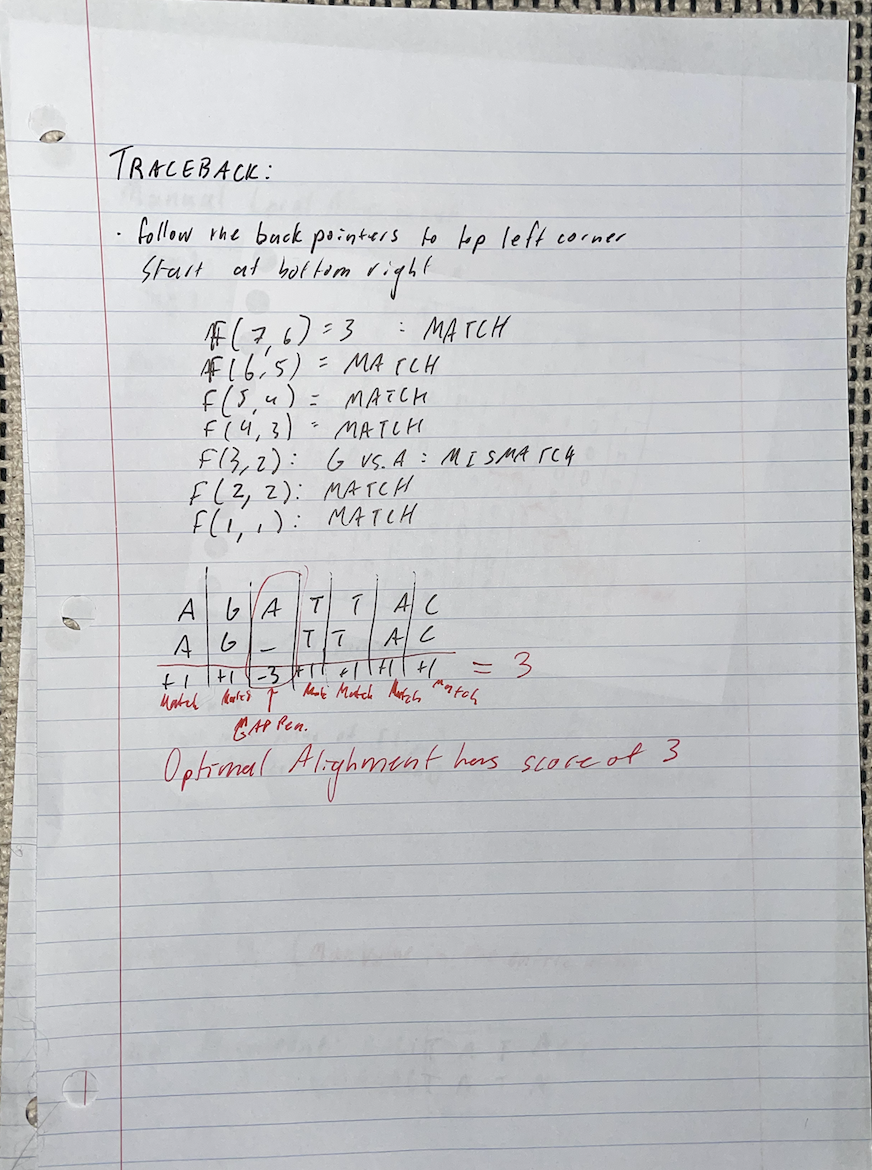 TRACEBACK:
· follow the back pointers to top left corner
Start at bottom right
F(7,6) = 3 : MATCH
F(6,5) = MATCH
F(5,4) = MATCH
F(4,3) = MATCH
F(3,2): G VS. A : MISMATCH
F(2,2): MATCH
F(1,1): MATCH
A | G | A | T | T | A | C
A | G | _ | T | T | A | C
+1 | +1 | -3 | +1 | +1 | +1 | +1 = 3
Match Match ↑ Match Match Match
GAP Pen.
Optimal Alighment has score of 3